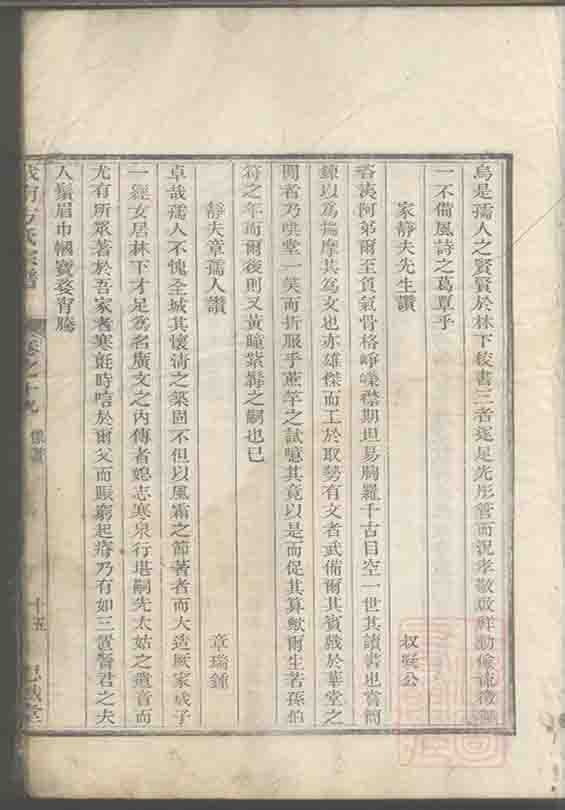 烏是孺人之賢賢於林下彼書三者逐足先彤管而況孝敬啟祥勤儉
一不備風詩之葛覃乎
家靜夫先生讚
叔
公
咨汝阿弟爾至負氣骨格崢嶸襟期坦易胸羅千古目空一世其讀書也嘗簡
鍊以爲揣摩其爲文也亦雄傑而工於取勢有文者武備爾其賓戲於華堂之
間者乃哄堂一笑而折服乎蔗竿之試噫其竟以是而促其算歟爾生若孫伯
符之年而爾後則又黃瞳紫髯之嗣也已
靜夫章孺人讚
章瑞鍾
卓哉孺人不愧全城其懷清之築固不但以風霜之節著者而大造厥家成子
一經女居林下才足爲名廣文之內傳者媲志寒泉行堪嗣先太姑之遺音而
尤有所眾著於吾家者寒氈時唁於爾父而賑窮起瘠乃有如三置醫君之夫
人鬚眉巾幗寶婺宵騰
方氏宗譜
卷之十九
像讚
十五